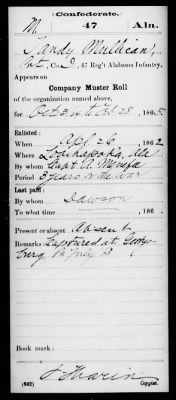 Confederate.
M 47 Ala.
Tandy Mullican,
Pvt, Co. I, 47 Reg't Alabama Infantry.
Appears on
Company Muster Roll
of the organization named above,
for Dec 31, 64 to Feb 28, 1865.
Enlisted:
When Apl 26, 1862
Where Loachapoka, Ala
By whom Capt A.
Period 3 years or the war
Last paid:
By whom Dawson
To what time , 186 .
Present or absent Absent
Remarks: Captured at Gettys-
burg Pa July 3
Book mark:
(642) Copyist.